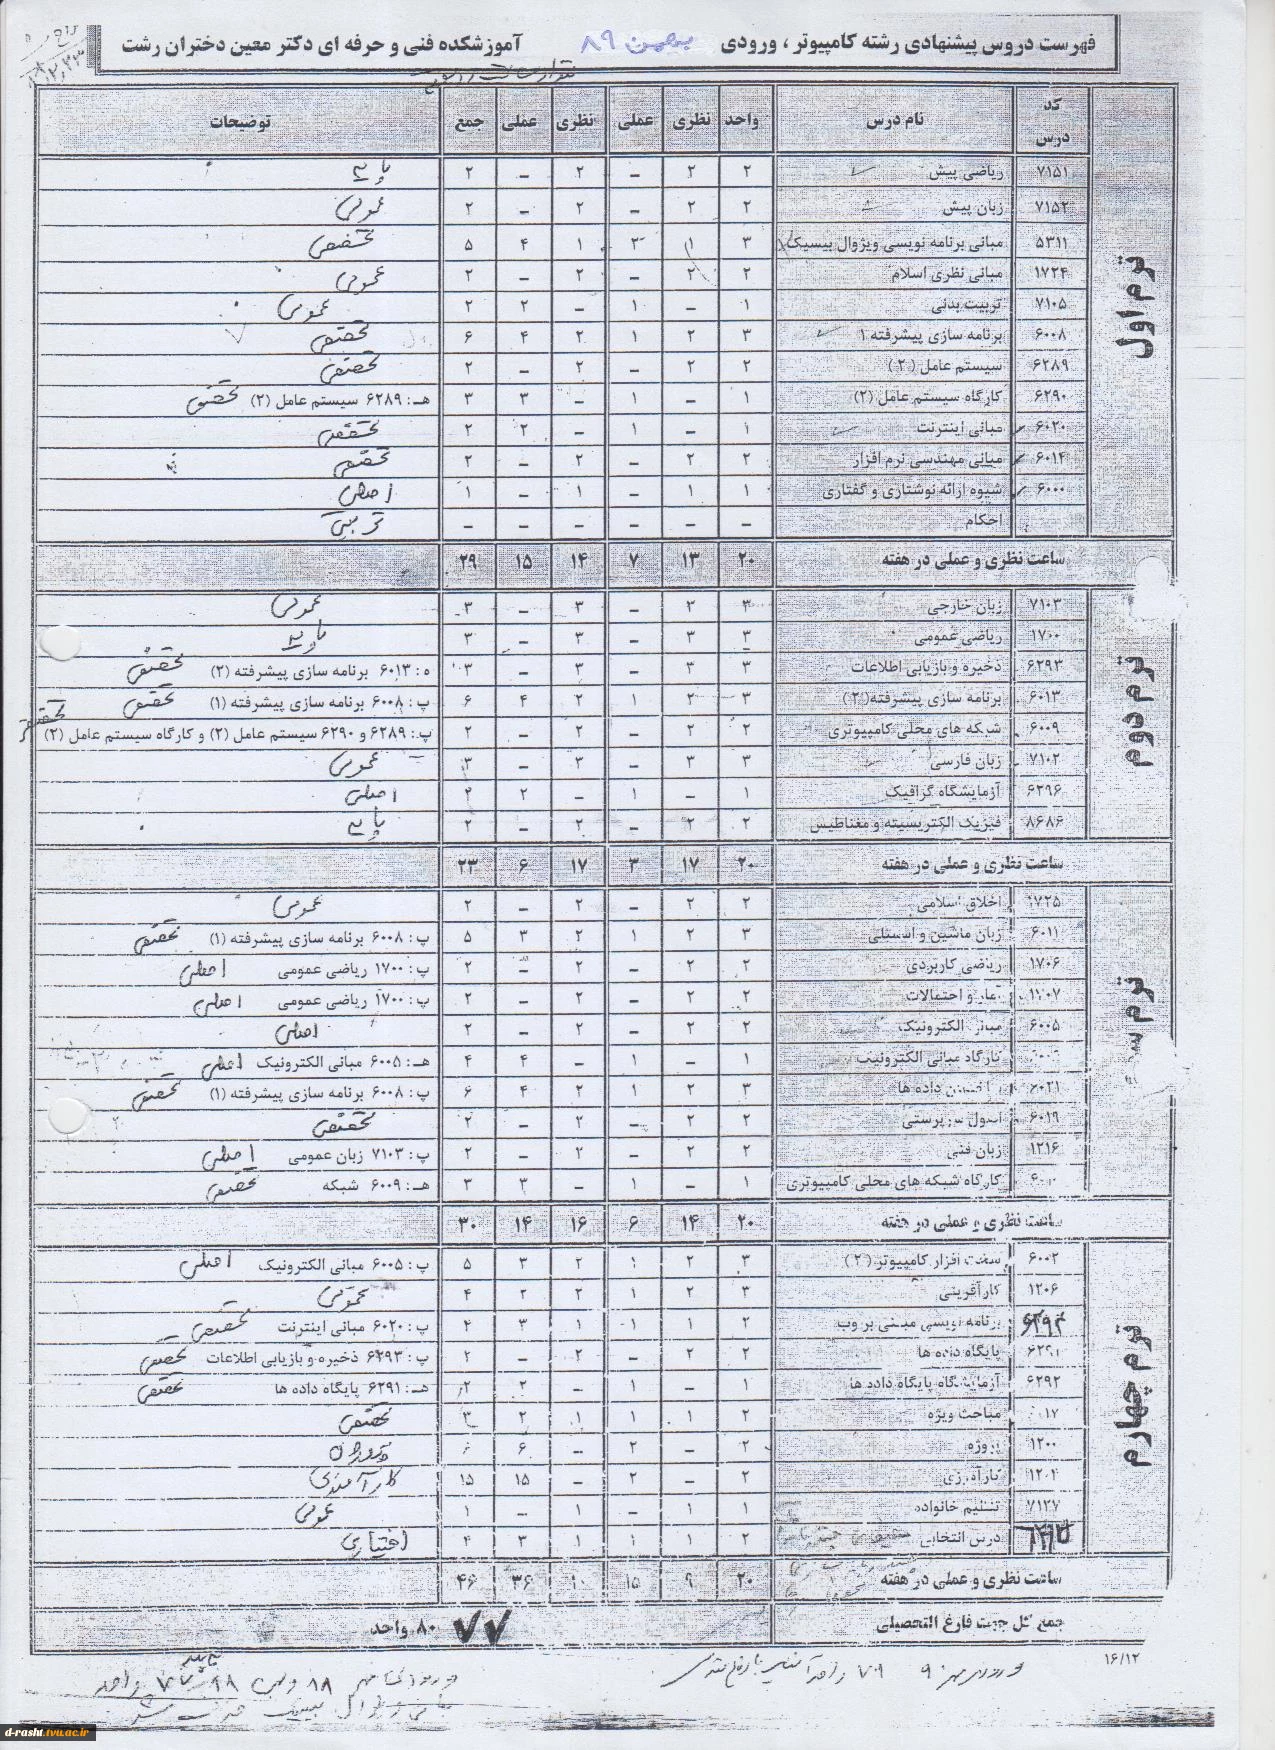 فهرست دروس پیشنهادی رشته کامپیوتر ، ورودی بهمن ۸۹ آموزشکده فنی و حرفه ای دکتر معین دختران رشت
کد درس نام درس واحد نظری عملی نظری عملی جمع توضیحات
ترم اول
۷۱۵۱ ریاضی پیش ۲ ۲ – ۲ – ۲ پایه
۷۱۵۲ زبان پیش ۲ ۲ – ۲ – ۲ عمومی
۵۳۱۱ مبانی برنامه نویسی ویژوال بیسیک ۳ ۱ ۲ ۱ ۴ ۵ تخصصی
۱۷۲۴ مبانی نظری اسلام ۲ ۲ – ۲ – ۲ عمومی
۷۱۰۵ تربیت بدنی ۱ – ۱ – ۲ ۲ عمومی
۶۰۰۸ برنامه سازی پیشرفته ۱ ۳ ۲ ۱ ۲ ۴ ۶ تخصصی
۶۲۸۹ سیستم عامل (۲) ۲ ۲ – ۲ – ۲ تخصصی
۶۲۹۰ کارگاه سیستم عامل (۲) ۱ – ۱ – ۳ ۳ هـ: ۶۲۸۹ سیستم عامل (۲) تخصصی
۶۰۲۰ مبانی اینترنت ۱ – ۱ – ۲ ۲ تخصصی
۶۰۱۴ مبانی مهندسی نرم افزار ۲ ۲ – ۲ – ۲ تخصصی
۶۰۰۰ شیوه ارائه نوشتاری و گفتاری ۱ ۱ – ۱ – ۱ اصلی
احکام – – – – – – تربیتی
ساعت نظری و عملی در هفته ۲۰ ۱۳ ۷ ۱۴ ۱۵ ۲۹
ترم دوم
۷۱۰۳ زبان خارجی ۳ ۳ – ۳ – ۳ عمومی
۱۷۰۰ ریاضی عمومی ۳ ۳ – ۳ – ۳ پایه
۶۲۹۳ ذخیره و بازیابی اطلاعات ۳ ۳ – ۳ – ۳ ه: ۶۰۱۳ برنامه سازی پیشرفته (۲) تخصصی
۶۰۱۳ برنامه سازی پیشرفته(۲) ۳ ۲ ۱ ۲ ۴ ۶ پ: ۶۰۰۸ برنامه سازی پیشرفته (۱) تخصصی
۶۰۰۹ شبکه های محلی کامپیوتری ۲ ۲ – ۲ – ۲ پ: ۶۲۸۹ و ۶۲۹۰ سیستم عامل (۲) و کارگاه سیستم عامل (۲) تخصصی
۷۱۰۲ زبان فارسی ۳ ۳ – ۳ – ۳ عمومی
۶۲۹۶ آزمایشگاه گرافیک ۱ – ۱ – ۲ ۲ اصلی
۸۶۸۶ فیزیک الکتریسیته و مغناطیس ۲ ۲ – ۲ – ۲ پایه
ساعت نظری و عملی در هفته ۲۰ ۱۷ ۳ ۱۷ ۶ ۲۳
ترم س
۱۷۲۵ اخلاق اسلامی ۲ ۲ – ۲ – ۲ عمومی
۶۰۱۱ زبان ماشین و اسمبلی ۳ ۲ ۱ ۲ ۳ ۵ پ: ۶۰۰۸ برنامه سازی پیشرفته (۱) تخصصی
۱۷۰۶ ریاضی کاربردی ۲ ۲ – ۲ – ۲ پ: ۱۷۰۰ ریاضی عمومی اصلی
۱۷۰۷ آمار و احتمالات ۲ ۲ – ۲ – ۲ پ: ۱۷۰۰ ریاضی عمومی اصلی
۶۰۰۵ مبانی الکترونیک ۲ ۲ – ۲ – ۲ اصلی
کارگاه مبانی الکترونیک ۱ – ۱ – ۴ ۴ هـ: ۶۰۰۵ مبانی الکترونیک اصلی
۶۰۲۱ داده ها ۳ ۲ ۱ ۲ ۴ ۶ پ: ۶۰۰۸ برنامه سازی پیشرفته (۱) تخصصی
۶۰۱۹ اصول سرپرستی ۲ ۲ – ۲ – ۲ تخصصی
۱۲۱۶ زبان فنی ۲ ۲ – ۲ – ۲ پ: ۷۱۰۳ زبان عمومی اصلی
کارگاه شبکه های محلی کامپیوتری ۱ – ۱ – ۳ ۳ هـ: ۶۰۰۹ شبکه تخصصی
ساعت نظری و عملی در هفته ۲۰ ۱۴ ۶ ۱۶ ۱۴ ۳۰
ترم چهارم
۶۰۰۲ سخت افزار کامپیوتر (۲) ۳ ۲ ۱ ۲ ۳ ۵ پ: ۶۰۰۵ مبانی الکترونیک اصلی
۱۲۰۶ کارآفرینی ۳ ۲ ۱ ۲ ۲ ۴ عمومی
۶۲۹۴ برنامه نویسی مبتنی بر وب ۲ ۱ ۱ ۱ ۳ ۴ پ: ۶۰۲۰ مبانی اینترنت تخصصی
۶۲۹۱ پایگاه داده ها ۲ ۲ – ۲ – ۲ پ: ۶۲۹۳ ذخیره و بازیابی اطلاعات تخصصی
۶۲۹۲ آزمایشگاه پایگاه داده ها ۱ – ۱ – ۲ ۲ هـ: ۶۲۹۱ پایگاه داده ها تخصصی
۰۱۷ مباحث ویژه ۲ ۱ ۱ ۱ ۲ ۳ تخصصی
۱۲۰۰ پروژه ۲ – ۲ – ۶ ۶
کارآموزی ۲ – ۲ – ۱۵ ۱۵ کارآموزی
۷۱۲۷ تنظیم خانواده ۱ ۱ – ۱ – ۱ عمومی
درس انتخابی ۲ ۱ ۱ ۱ ۳ ۴ اختیاری
ساعت نظری و عملی در هفته ۲۰ ۹ ۱۵ ۱۰ ۳۶ ۴۶
جمع کل جهت فارغ التحصیلی ۸۰ واحد ۷۷
۱۶/۱۲
ورودی مهر ۹۰ ۷۹ واحد
ورودی مهر ۸۸ و بهمن ۸۸ ۷۷ واحد
d-rasht.tvu.ac.ir